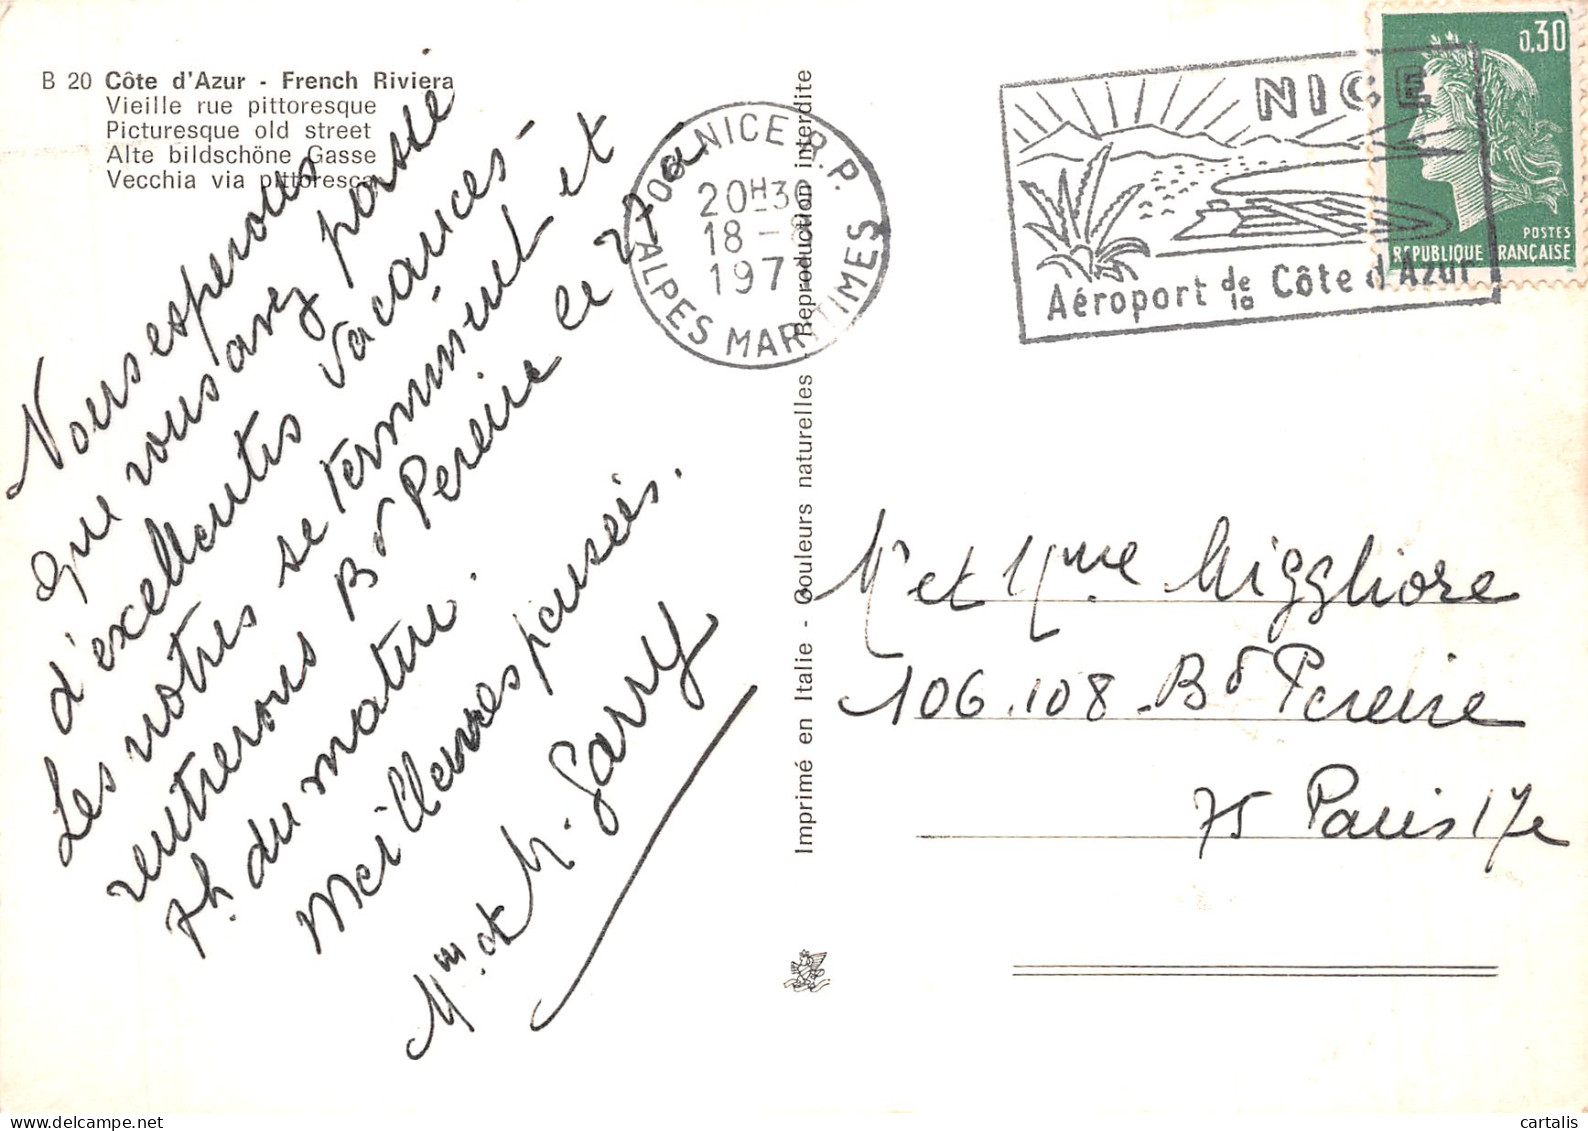 B 20 Côte d'Azur - French Riviera
Vieille rue pittoresque
Picturesque old street
Alte bildschöne Gasse
Vecchia via pittoresca
Nous esperons
que vous avez passé
d'excellentes vacances -
Les notres se terminent et
rentrerons Bd Pereire le 27 août
7h. du matin.
Meilleures pensées.
Mme et M. Garry
Imprimé en Italie - Couleurs naturelles - Reproduction interdite
NICE R.P.
20H30
18 - 8
197
ALPES MARITIMES
NICE
Aéroport de la Côte d'Azur
0,30
POSTES
REPUBLIQUE FRANÇAISE
Mr et Mme Miggliore
106.108 - Bd Pereire
75 Paris 17e
cartalis